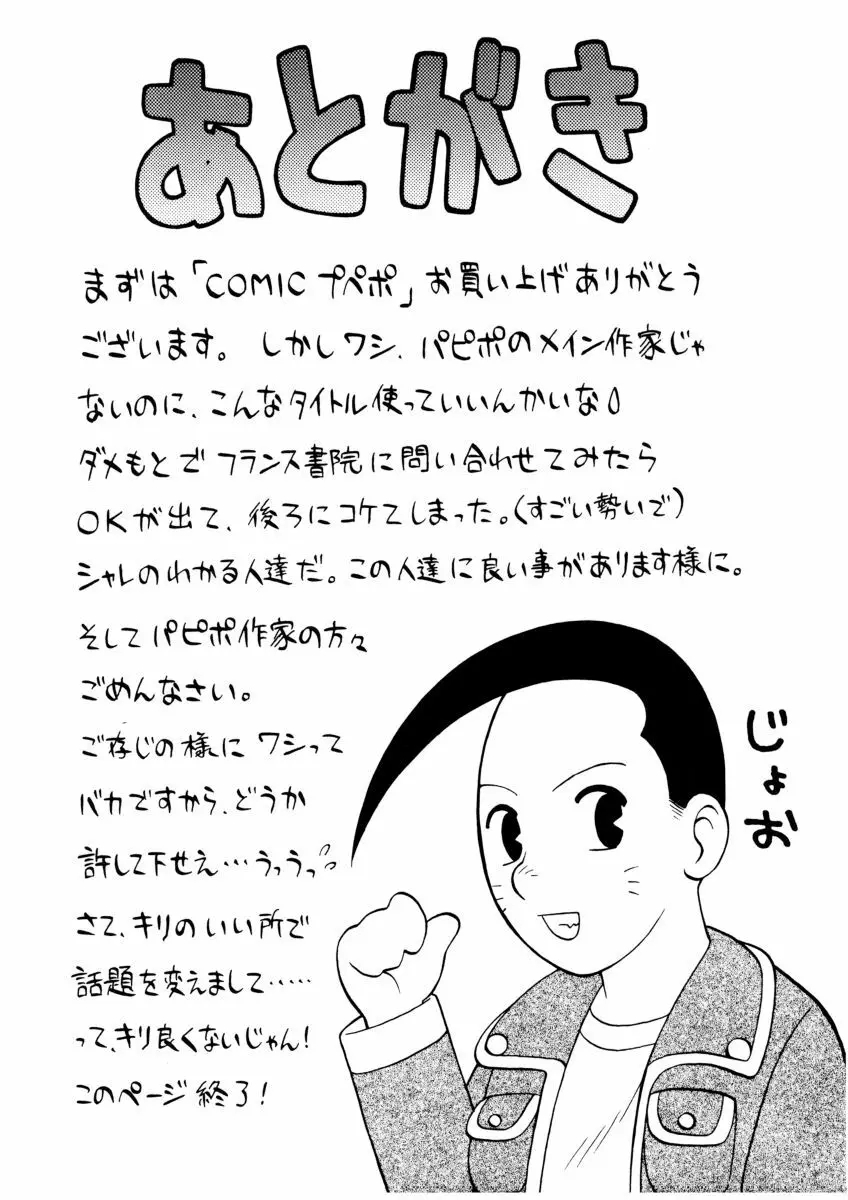 あとがき
まずは「COMICプペポ」お買い上げありがとう
ございます。しかしワシ、パピポのメイン作家じゃ
ないのに、こんなタイトル使っていいんかいな
ダメもとでフランス書院に問い合わせてみたら
OKが出て、後ろにコケてしまった。(すごい勢いで)
シャレのわかる人達だ。この人達に良い事があります様に。
そしてパピポ作家の方々
ごめんなさい。
ご存じの様にワシって
バカですから、どうか
許して下せえ…うっうっ
さて、キリのいい所で
話題を変えまして……
って、キリ良くないじゃん!
このページ終了!
じょお